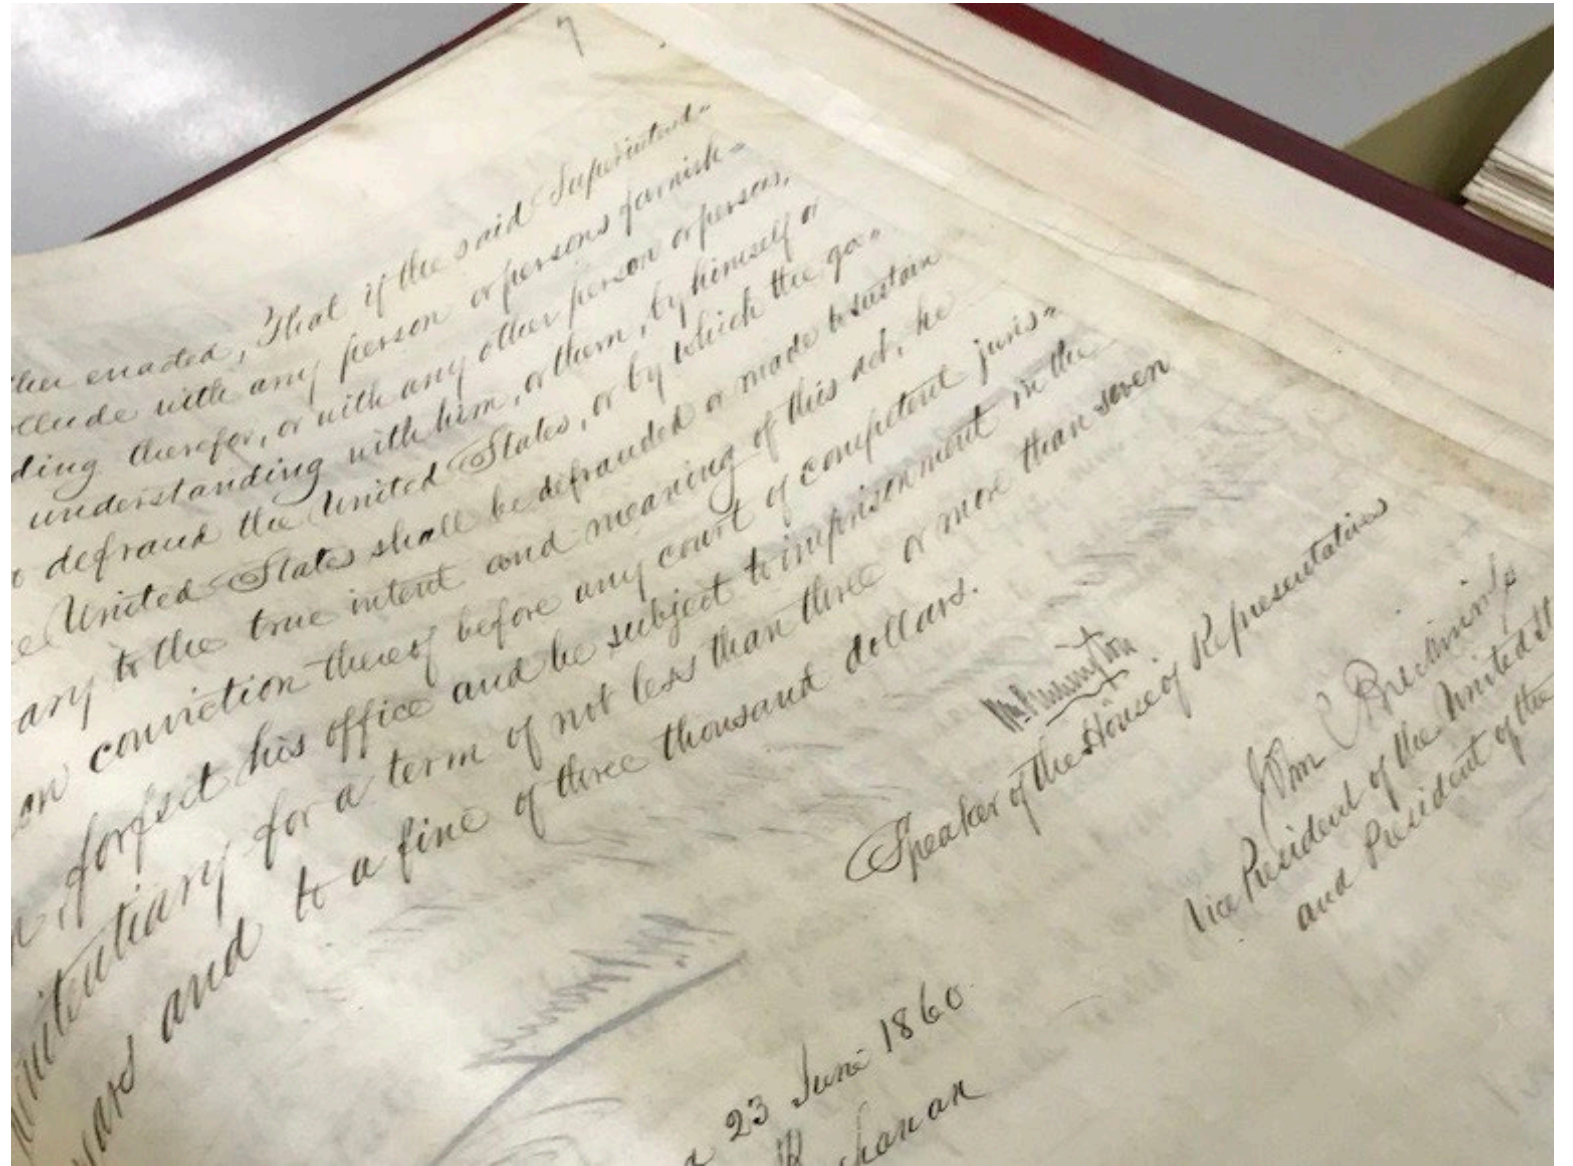 7
ther enacted, That if the said Superintend-
ollude with any person or persons furnish-
ding therefor, or with any other person or persons,
understanding with him, or them, by himself or
o defraud the United States, or by which the go-
e United States shall be defrauded or made to sustain
ary to the true intent and meaning of this act, he
on conviction thereof before any court of competent juris-
n, forfeit his office and be subject to imprisonment in the
nitentiary for a term of not less than three or more than seven
years and to a fine of three thousand dollars.
Wm Pennington
Speaker of the House of Representatives
John C Breckinridge
Vice President of the United St
and President of the
23 June 1860
Buchanan